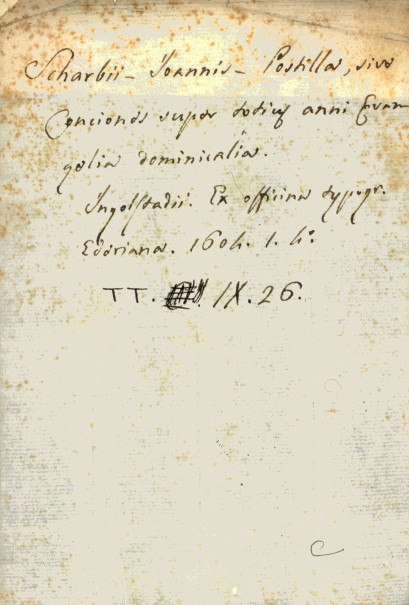 Scharbii - Joannis - Postilla, sive
Conciones super totius anni Evan-
gelia dominicalia.
Ingolstadii. Ex officina typogr.
Ederiana. 1604. 1. 4°.
TT. IX. 26.